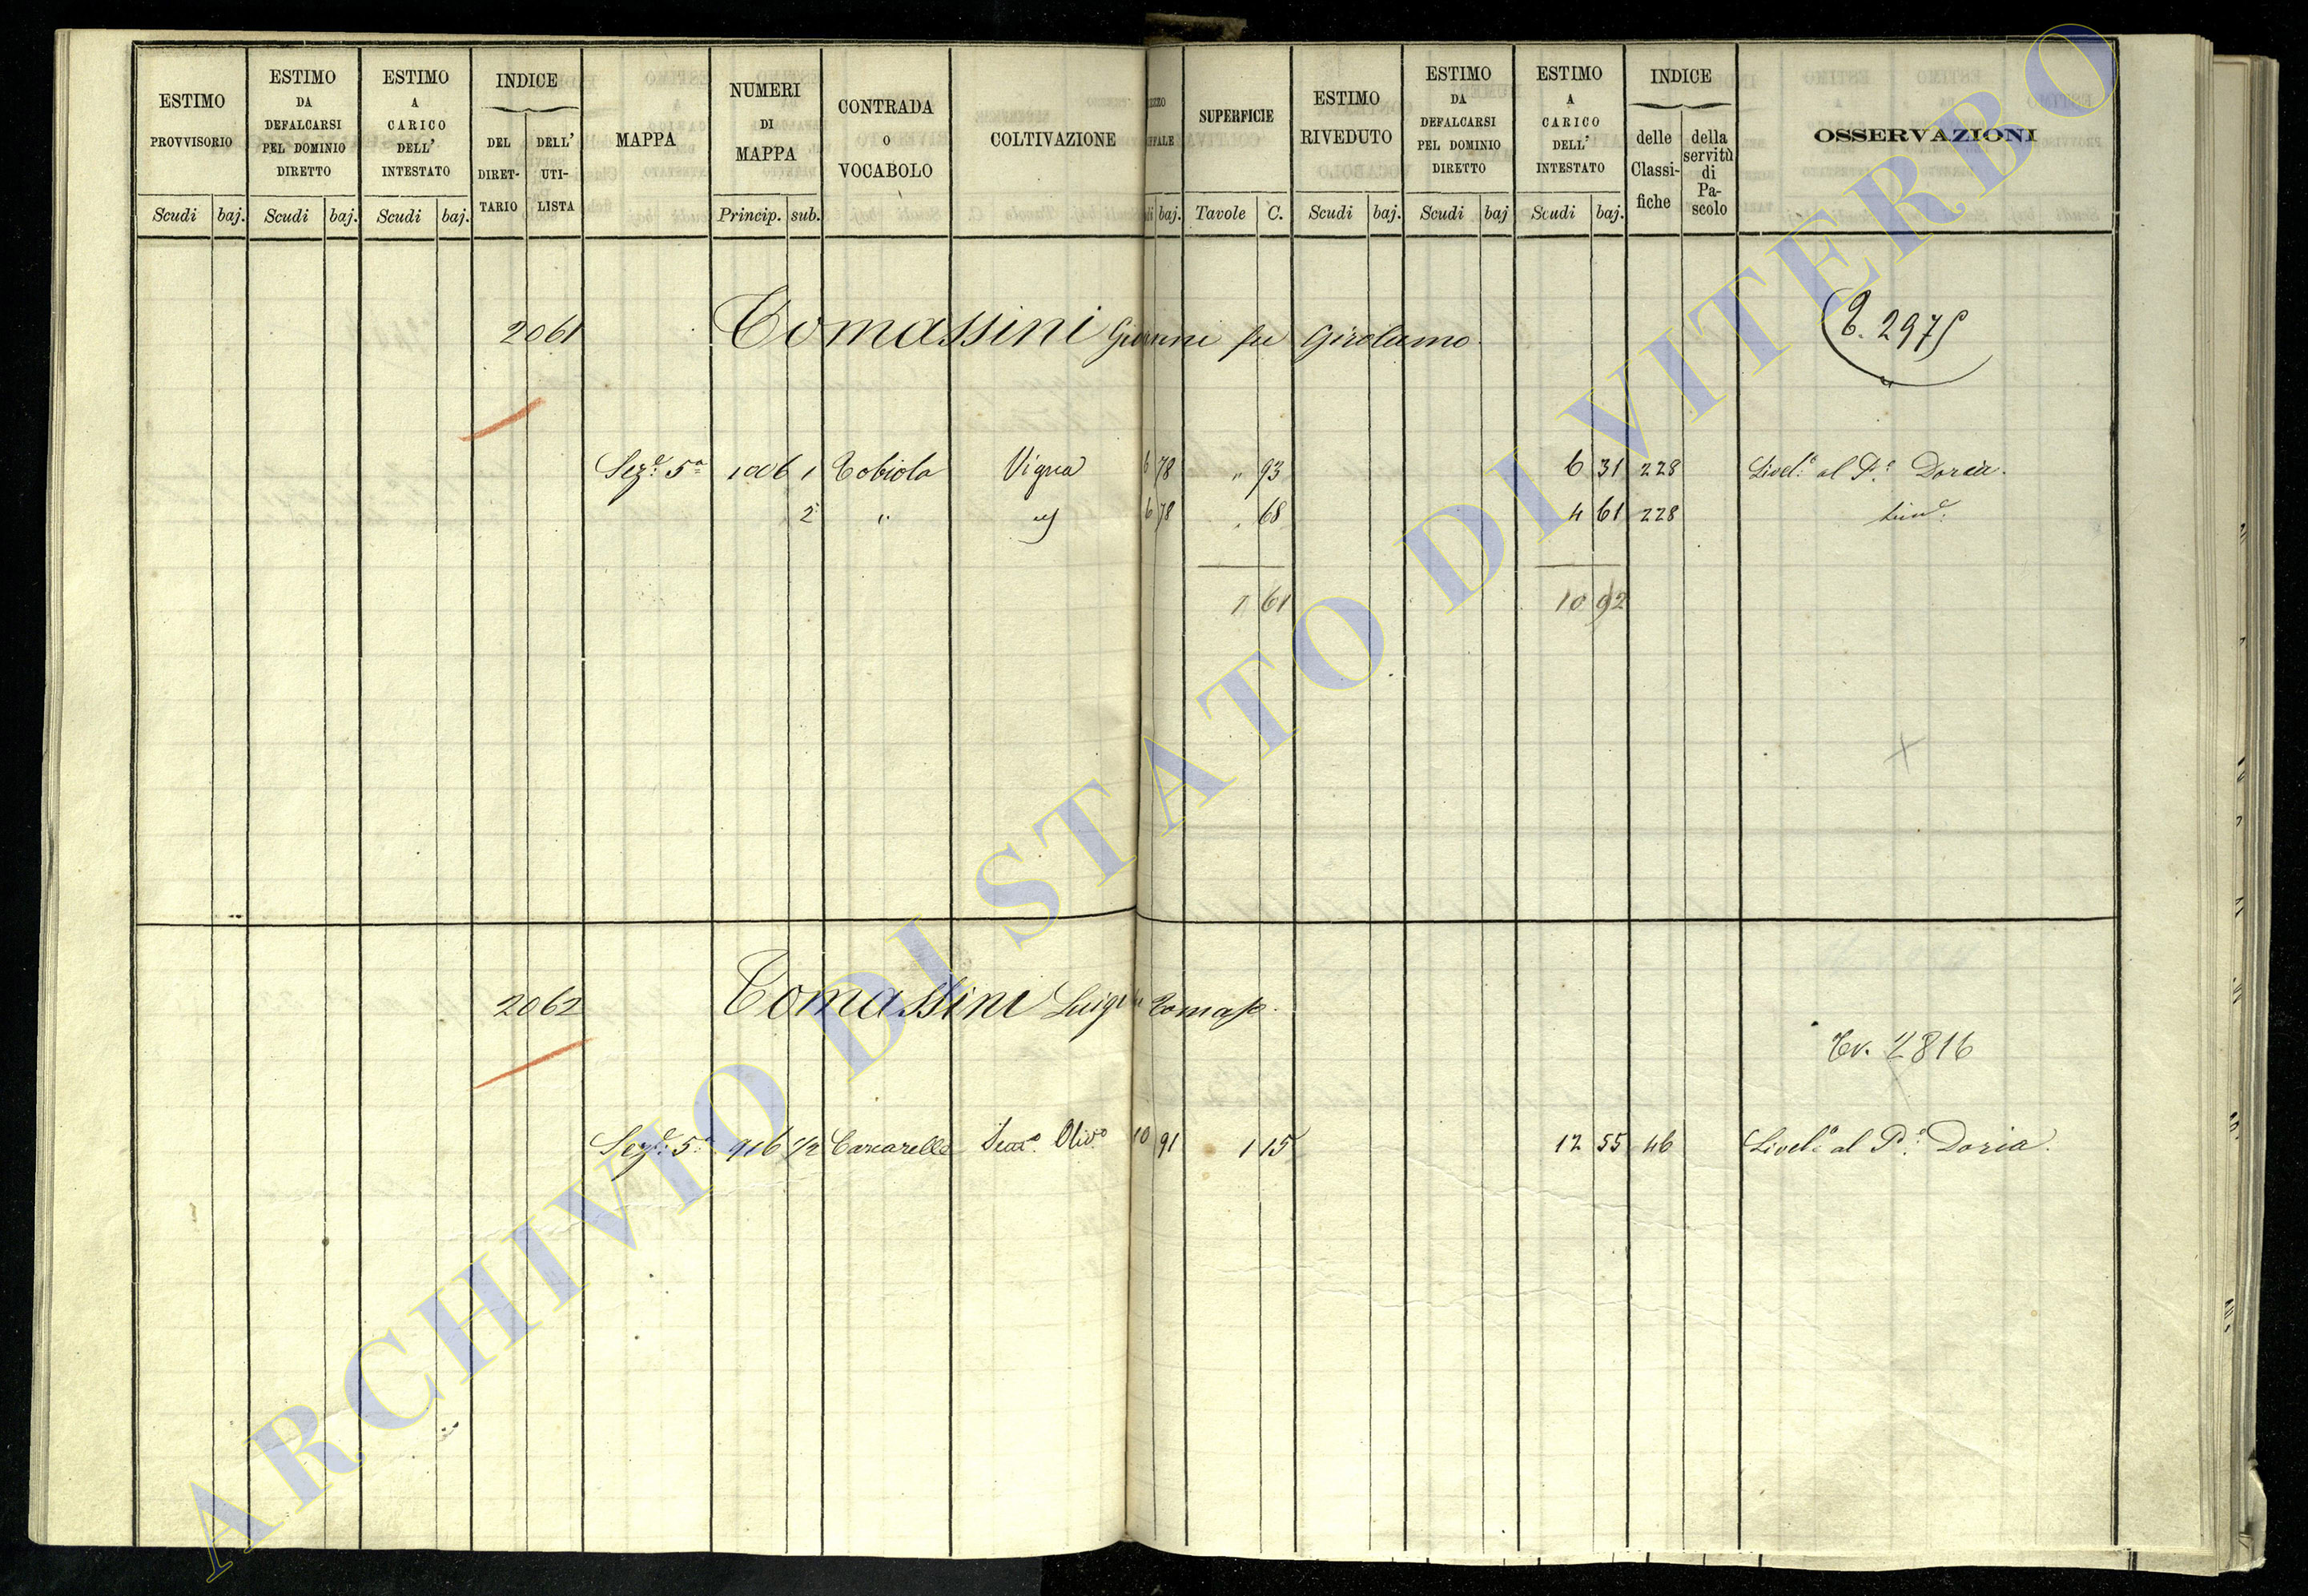 ESTIMO PROVVISORIO
ESTIMO DA DEFALCARSI PEL DOMINIO DIRETTO
ESTIMO A CARICO DELL' INTESTATO
INDICE
DEL DIRET- TARIO
DELL' UTI- LISTA
MAPPA
NUMERI DI MAPPA
CONTRADA O VOCABOLO
COLTIVAZIONE
SUPERFICIE
ESTIMO RIVEDUTO
ESTIMO DA DEFALCARSI PEL DOMINIO DIRETTO
ESTIMO A CARICO DELL' INTESTATO
INDICE
delle Classi- fiche
della servitù di Pa- scolo
OSSERVAZIONI
Scudi baj. Scudi baj. Scudi baj. Princip. sub. baj. Tavole C. Scudi baj. Scudi baj Scudi baj.
2061 Tomassini fu Girolamo T. 2975
Sez.e 5a 1006 1 Tobiola Vigna 6 78 " 93 6 31 228 Livel.o al P.e Doria.
2 " 6 78 " 68 4 61 228
1 61 10 92
2062 Tomassini Luigi Tomaso.
Tv. 2816
Sez.e 5a 916 1/2 Carcarelle Sem.o Oliv.o 10 91 1 15 12 55 46 Livel.o al P.e Doria.
ARCHIVIO DI STATO DI VITERBO